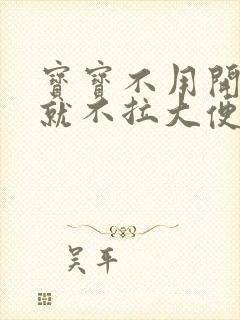 寶寶不用開
就不拉大便
吳平